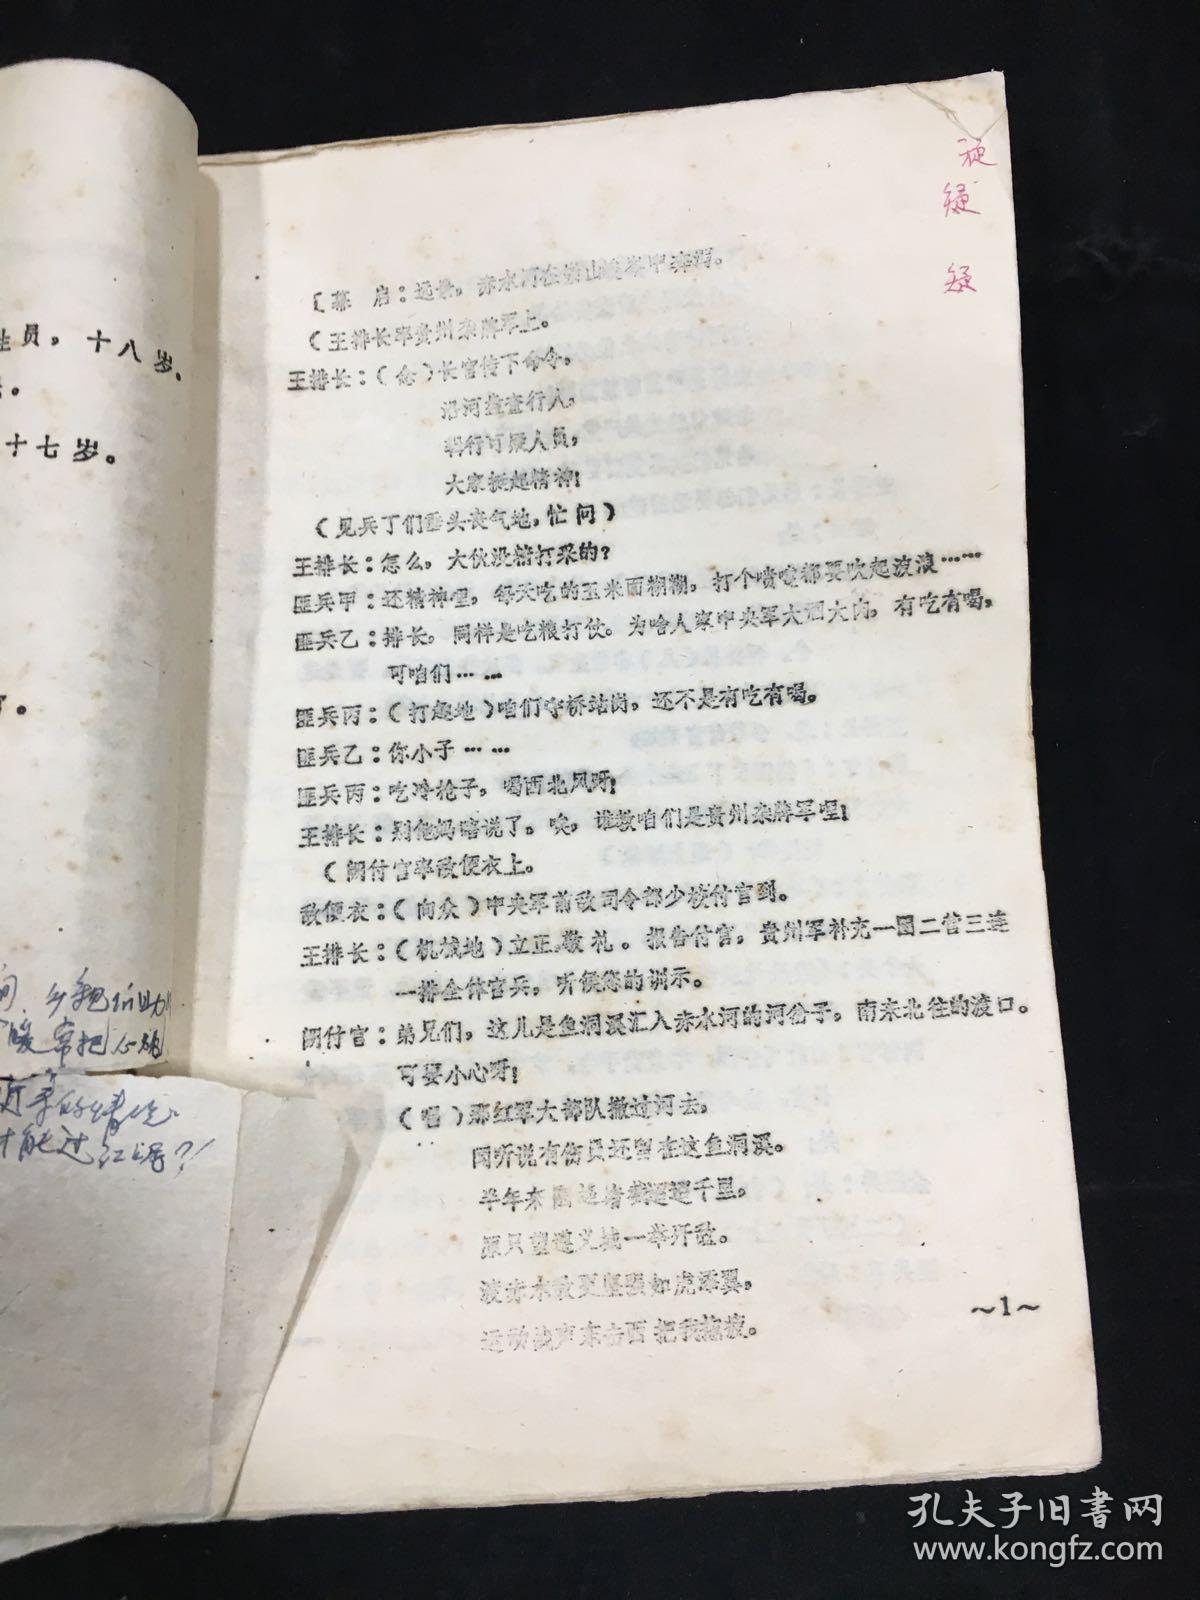 性员，十八岁。
十七岁。
〔幕 启：远景，赤水河在崇山峻岭中奔泻。
（王排长率贵州杂牌军上。
王排长：（念）长官传下命令，
沿河盘查行人，
可疑人员，
大家振起精神！
（见兵丁们垂头丧气地，忙问）
王排长：怎么，大伙没精打采的？
匪兵甲：还精神哩，每天吃的玉米面糊糊，打个喷嚏都要吹起波浪……
匪兵乙：排长，同样是吃粮打仗。为啥人家中央军大酒大肉，有吃有喝，
可咱们……
匪兵丙：（打趣地）咱们守桥站岗，还不是有吃有喝。
匪兵乙：你小子……
匪兵丙：吃冷枪子，喝西北风呀！
王排长：别他妈瞎说了。唉，谁教咱们是贵州杂牌军哩！
（阴付官率敌便衣上。
敌便衣：（向众）中央军前敌司令部少校付官到。
王排长：（机械地）立正，敬礼。报告付官，贵州军补充一团二营三连
一排全体官兵，听候您的训示。
阴付官：弟兄们，这儿是鱼洞溪汇入赤水河的河岔子，南来北往的渡口。
可要小心呀！
（唱）那红军大部队撤过河去，
听说有伤员还留在这鱼洞溪。
半年来围追堵截迢迢千里，
原只望遵义城一举歼敌。
渡赤水敌更坚强如虎添翼，
运动战声东击西把我拖疲。
~1~
疑
疑
孔夫子旧书网
www.kongfz.com